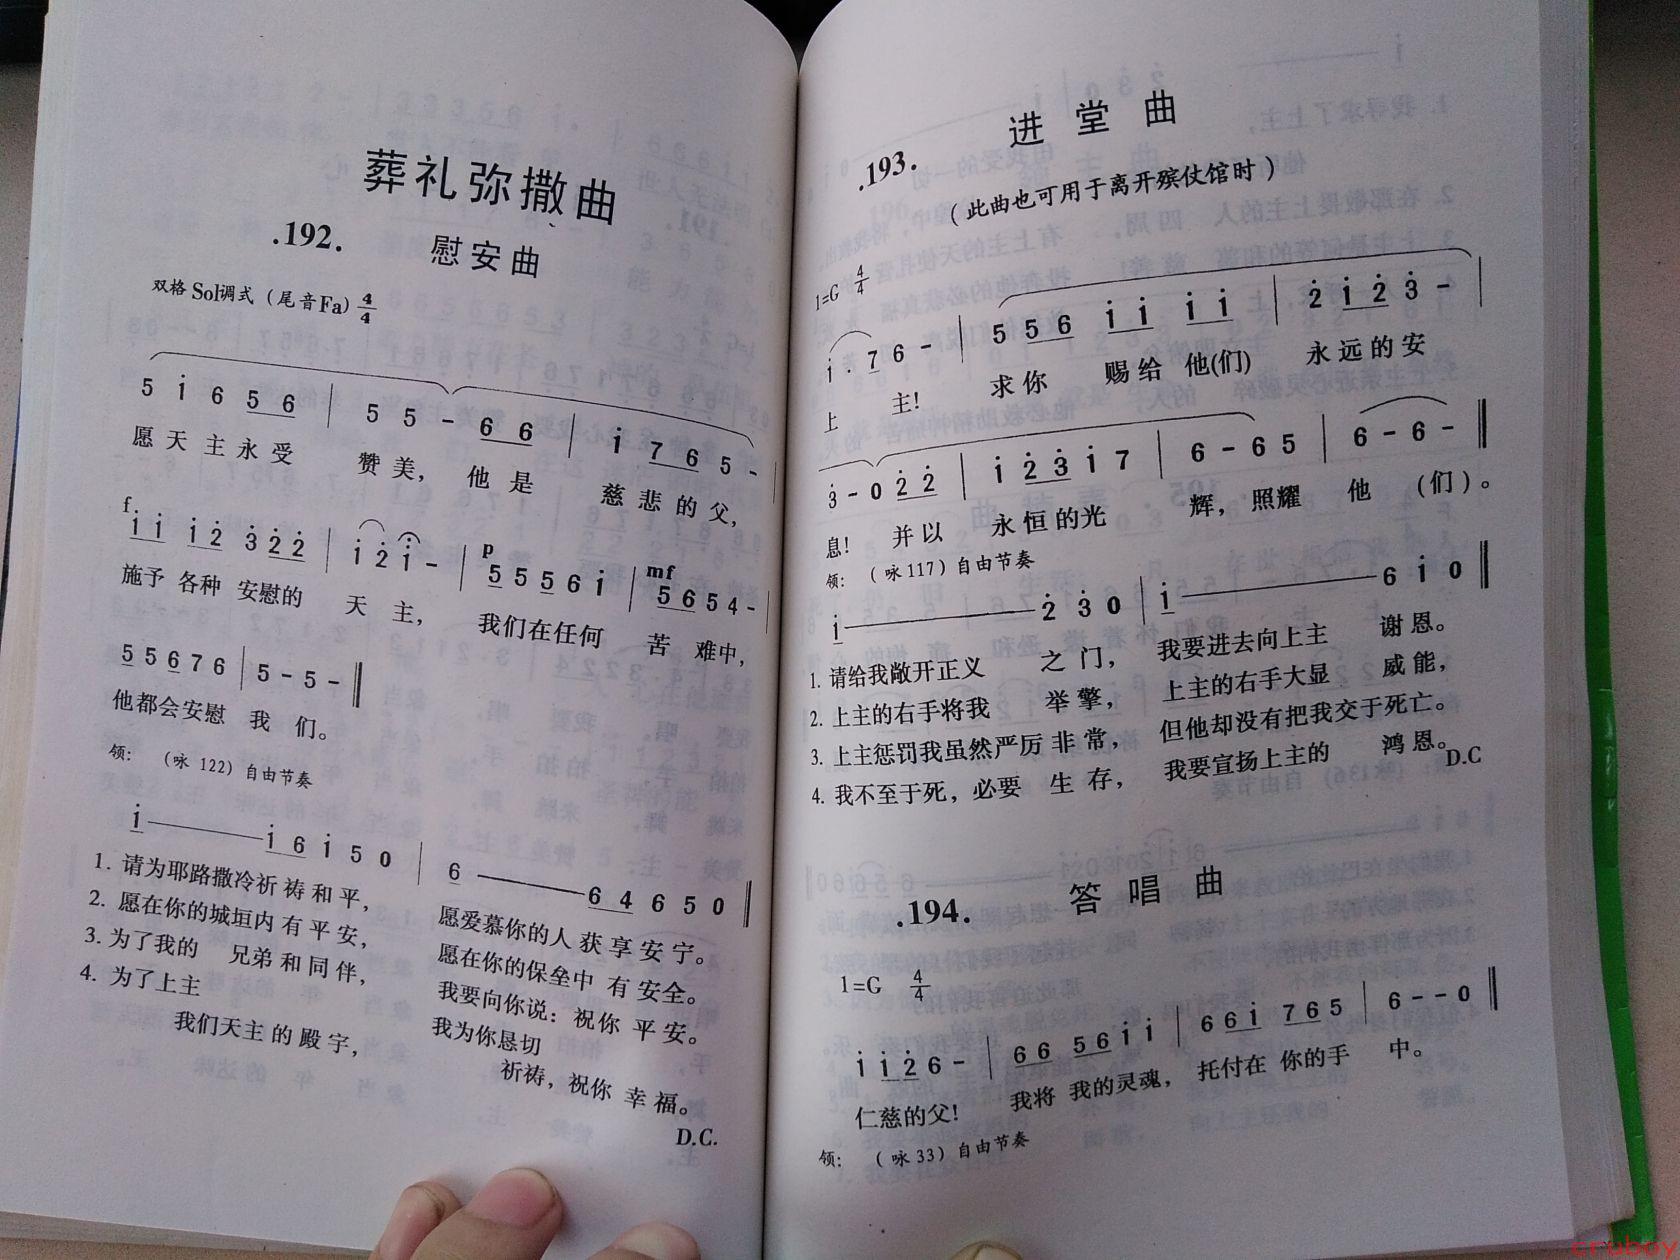 葬礼弥撒曲
.192. 慰安曲
双格Sol调式（尾音Fa）4/4
5 i 6 5 6 | 5 5 - 6 6 | i 7 6 5 -
愿天主永受 赞美，他是 慈悲的父，
f
i i i 2 3 2 2 | i 2 i - | p 5 5 5 6 i | mf 5 6 5 4 -
施予各种安慰的 天主， 我们在任何 苦难中，
5 5 6 7 6 | 5 - 5 -
他都会安慰 我们。
领：（咏122）自由节奏
i——i 6 i 5 0 | 6——6 4 6 5 0
1. 请为耶路撒冷祈祷和平， 愿爱慕你的人获享安宁。
2. 愿在你的城垣内有平安， 愿在你的保垒中有安全。
3. 为了我的 兄弟和同伴， 我要向你说：祝你平安。
4. 为了上主 我为你恳切
我们天主的殿宇， 祈祷，祝你幸福。
D.C.
进堂曲
.193.
（此曲也可用于离开殡仪馆时）
1=G 4/4
i . 7 6 - | 5 5 6 i i i i | 2 i 2 3 -
上 主！ 求你 赐给他(们) 永远的安
3 - 0 2 2 | i 2 3 i 7 | 6 - 6 5 | 6 - 6 -
息！ 并以 永恒的光 辉，照耀 他 （们）。
领：（咏117）自由节奏
i——2 3 0 | i——6 i 0
1. 请给我敞开正义 之门， 我要进去向上主 谢恩。
2. 上主的右手将我 举擎， 上主的右手大显 威能，
3. 上主惩罚我虽然严厉非常， 但他却没有把我交于死亡。
4. 我不至于死，必要 生存， 我要宣扬上主的 鸿恩。
D.C
.194. 答唱曲
1=G 4/4
i i 2 6 - | 6 6 5 6 i i | 6 6 i 7 6 5 | 6 - - 0
仁慈的父！ 我将 我的灵魂， 托付在 你的手 中。
领：（咏33）自由节奏
cruboy